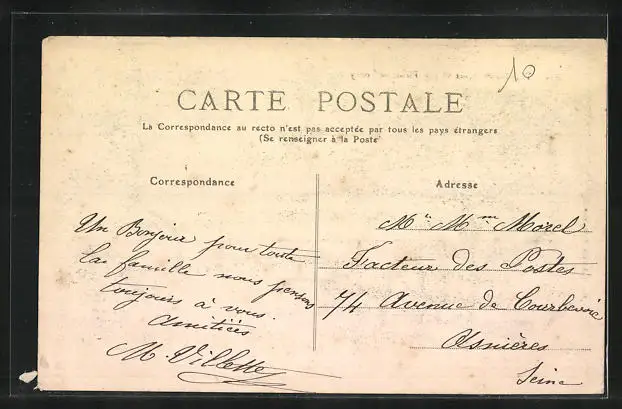 10
CARTE POSTALE
La Correspondance au recto n'est pas acceptée par tous les pays étrangers
(Se renseigner à la Poste
Correspondance
Un Bonjour pour toute
la famille nous pensons
toujours à vous.
Amitiées
M. Villette
Adresse
Mr Mme Morel
Facteur des Postes
74 Avenue de Courbevoie
Asnières
Seine